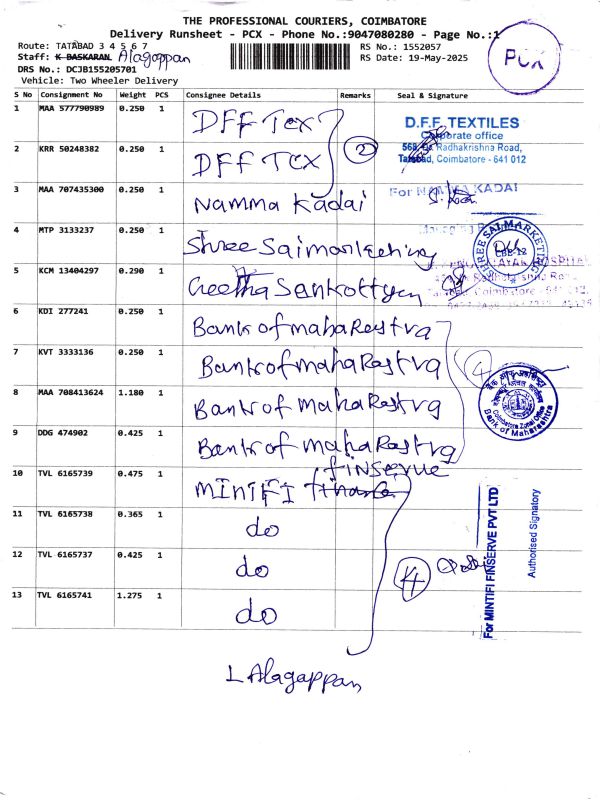 THE PROFESSIONAL COURIERS, COIMBATORE
Delivery Runsheet - PCX - Phone No.:9047080280 - Page No.:1
Route: TATABAD 3 4 5 6 7
RS No.: 1552057
PCX
Staff: K BASKARAN Alagappan
RS Date: 19-May-2025
DRS No.: DCJB155205701
Vehicle: Two Wheeler Delivery
S No Consignment No Weight PCS Consignee Details Remarks Seal & Signature
1 MAA 577790989 0.250 1 DFF Tex
D.F.F. TEXTILES
Corporate office
2 KRR 50248382 0.250 1 DFF TEX 2
Radhakrishna Road,
Tatabad, Coimbatore - 641 012
3 MAA 707435300 0.250 1 Namma Kadai
For NAMMA KADAI
4 MTP 3133237 0.250 1 Shree Saimarketing
SHREE SAI MARKETING
CBE-12
5 KCM 13404297 0.290 1 Geetha
6 KDI 277241 0.250 1 Bank of maha Rastra
7 KVT 3333136 0.250 1 Bank of maha Rastra 4
8 MAA 708413624 1.180 1 Bank of Maha Rastra
Coimbatore Zonal Office
Bank of Maharashtra
9 DDG 474902 0.425 1 Bank of maha Rastra
finserve
10 TVL 6165739 0.475 1 MINTIFI
11 TVL 6165738 0.365 1 do
12 TVL 6165737 0.425 1 do 4
13 TVL 6165741 1.275 1 do
For MINTIFI FINSERVE PVT LTD
Authorised Signatory
L Alagappan